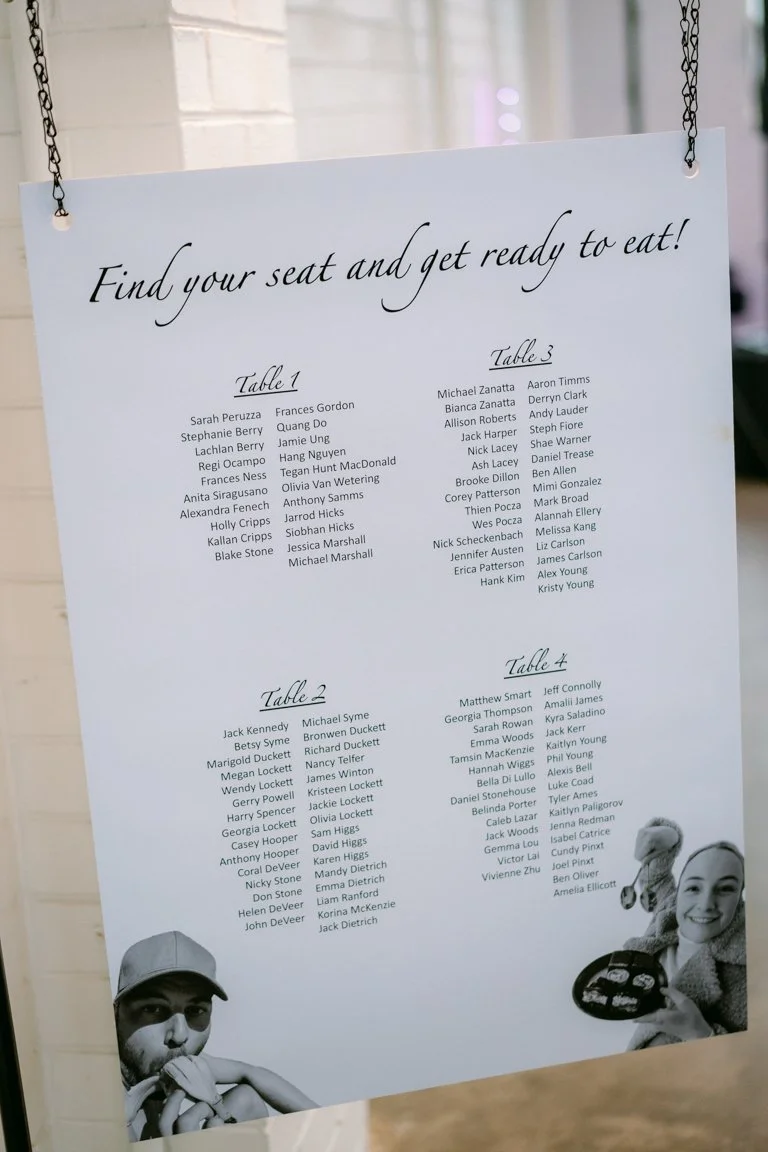 Find your seat and get ready to eat!
Table 1
Sarah Peruzza
Stephanie Berry
Lachlan Berry
Regi Ocampo
Frances Ness
Anita Siragusano
Alexandra Fenech
Holly Cripps
Kallan Cripps
Blake Stone
Frances Gordon
Quang Do
Jamie Ung
Hang Nguyen
Tegan Hunt MacDonald
Olivia Van Wetering
Anthony Samms
Jarrod Hicks
Siobhan Hicks
Jessica Marshall
Michael Marshall
Table 3
Michael Zanatta
Bianca Zanatta
Allison Roberts
Jack Harper
Nick Lacey
Ash Lacey
Brooke Dillon
Corey Patterson
Thien Pocza
Wes Pocza
Nick Scheckenbach
Jennifer Austen
Erica Patterson
Hank Kim
Aaron Timms
Derryn Clark
Andy Lauder
Steph Fiore
Shae Warner
Daniel Trease
Ben Allen
Mimi Gonzalez
Mark Broad
Alannah Ellery
Melissa Kang
Liz Carlson
James Carlson
Alex Young
Kristy Young
Table 2
Jack Kennedy
Betsy Syme
Marigold Duckett
Megan Lockett
Wendy Lockett
Gerry Powell
Harry Spencer
Georgia Lockett
Casey Hooper
Anthony Hooper
Coral DeVeer
Nicky Stone
Don Stone
Helen DeVeer
John DeVeer
Michael Syme
Bronwen Duckett
Richard Duckett
Nancy Telfer
James Winton
Kristeen Lockett
Jackie Lockett
Olivia Lockett
Sam Higgs
David Higgs
Karen Higgs
Mandy Dietrich
Emma Dietrich
Liam Ranford
Korina McKenzie
Jack Dietrich
Table 4
Matthew Smart
Georgia Thompson
Sarah Rowan
Emma Woods
Tamsin MacKenzie
Hannah Wiggs
Bella Di Lullo
Daniel Stonehouse
Belinda Porter
Caleb Lazar
Jack Woods
Gemma Lou
Victor Lai
Vivienne Zhu
Jeff Connolly
Amalii James
Kyra Saladino
Jack Kerr
Kaitlyn Young
Phil Young
Alexis Bell
Luke Coad
Tyler Ames
Kaitlyn Paligorov
Jenna Redman
Isabel Catrice
Cundy Pinxt
Joel Pinxt
Ben Oliver
Amelia Ellicott